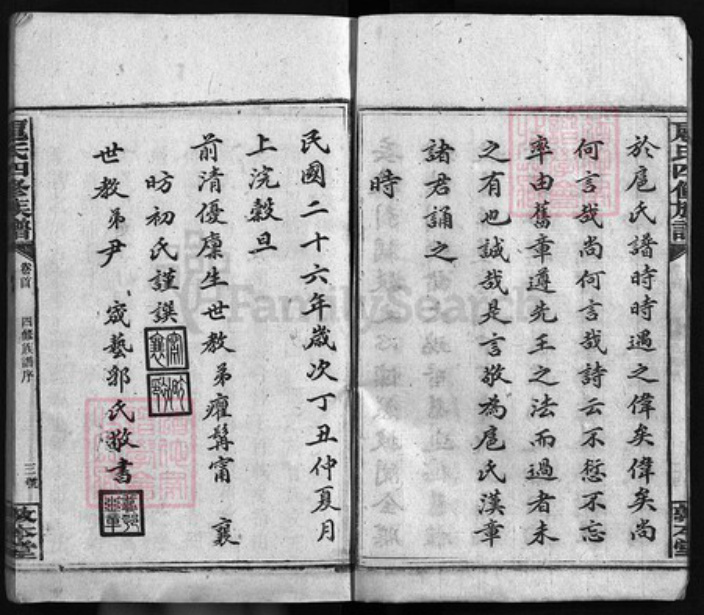 於扈氏譜時時遇之偉矣偉矣尚
何言哉尚何言哉詩云不愆不忘
率由舊章遵先王之法而過者未
之有也誠哉是言敬為扈氏漢章
諸君誦之
時
民國二十六年歲次丁丑仲夏月
上浣穀旦
前清優廩生世教弟癯髯甯 襄
昉初氏謹譔
世教弟尹 宬藝邠氏敬書
扈氏四修族譜
卷首
四修族譜序
三號
敦本堂
FamilySearch